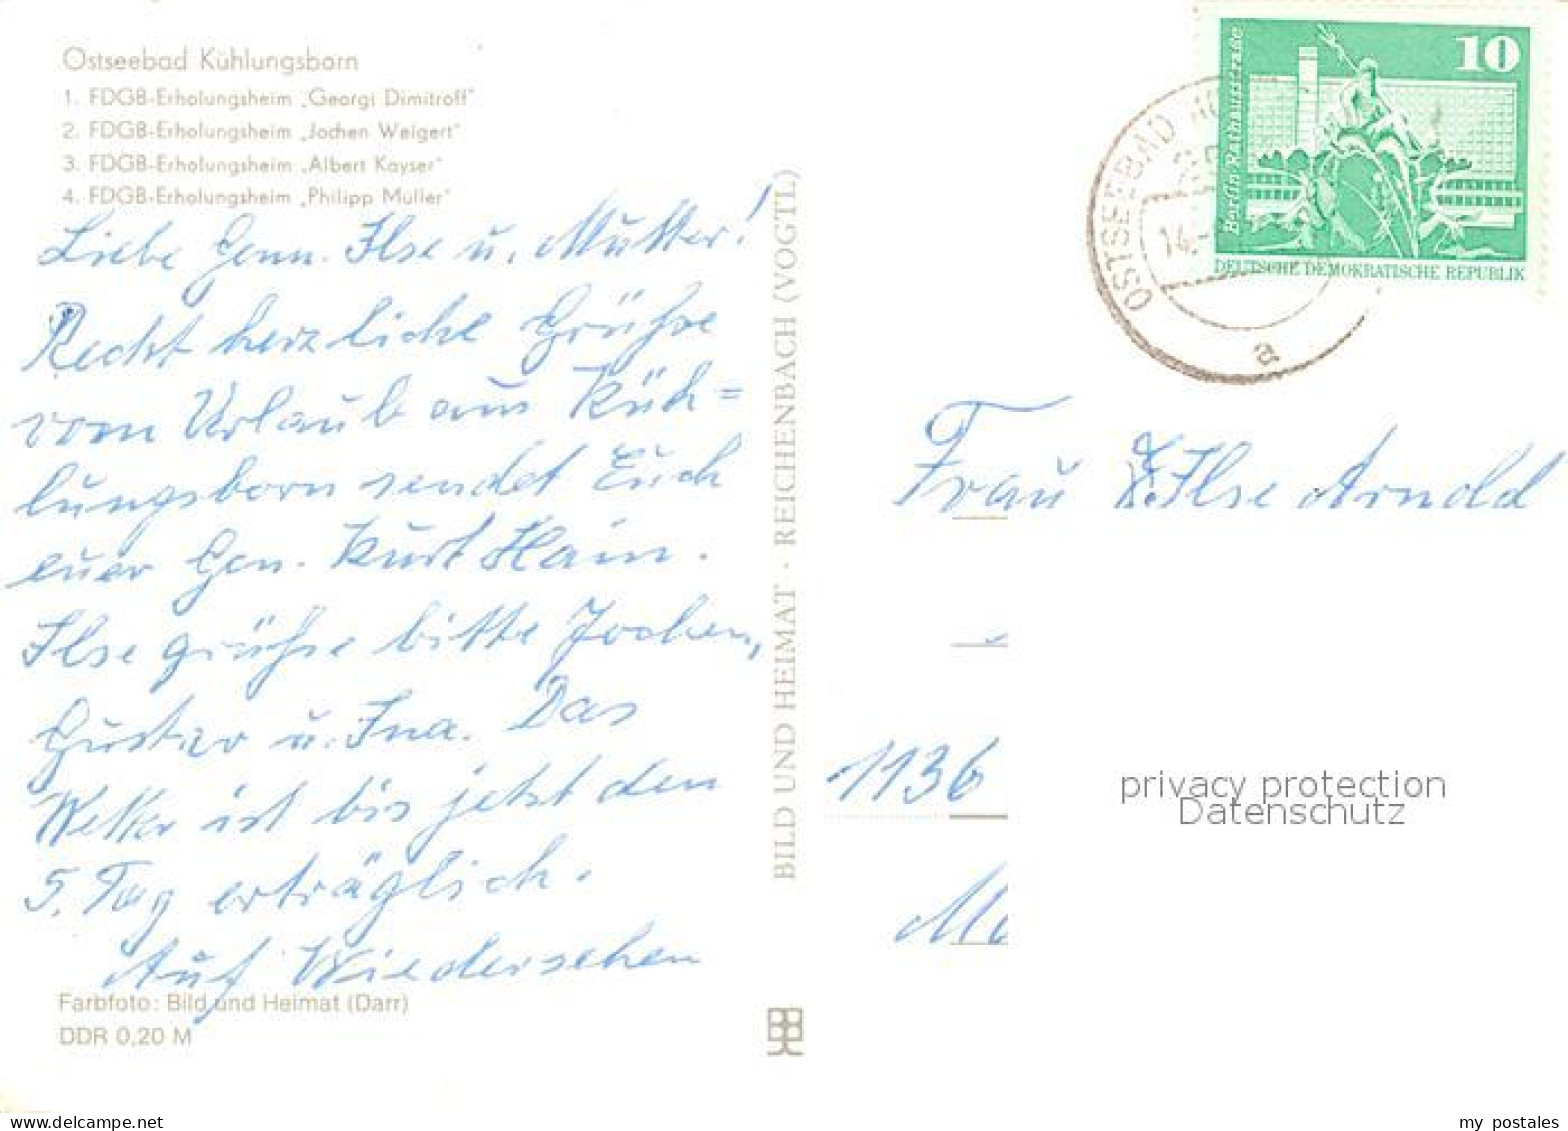 Ostseebad Kühlungsborn
1. FDGB-Erholungsheim „Georgi Dimitroff“
2. FDGB-Erholungsheim „Jochen Weigert“
3. FDGB-Erholungsheim „Albert Kayser“
4. FDGB-Erholungsheim „Philipp Müller“
Liebe Genn. Ilse u. Mutter!
Recht herzliche Grüße
vom Urlaub aus Küh=
lungsborn sendet Euch
euer Gen. Kurt Hain.
Ilse grüße bitte Jochen,
Gustav u. Ina. Das
Wetter ist bis jetzt den
5. Tag erträglich.
Auf Wiedersehen
Farbfoto: Bild und Heimat (Darr)
DDR 0,20 M
BILD UND HEIMAT · REICHENBACH (VOGTL)
10
Berlin Rathausstraße
DEUTSCHE DEMOKRATISCHE REPUBLIK
OSTSEEBAD
14.
a
Frau Ilse Arnold
1136
privacy protection
Datenschutz
www.delcampe.net
my_postales